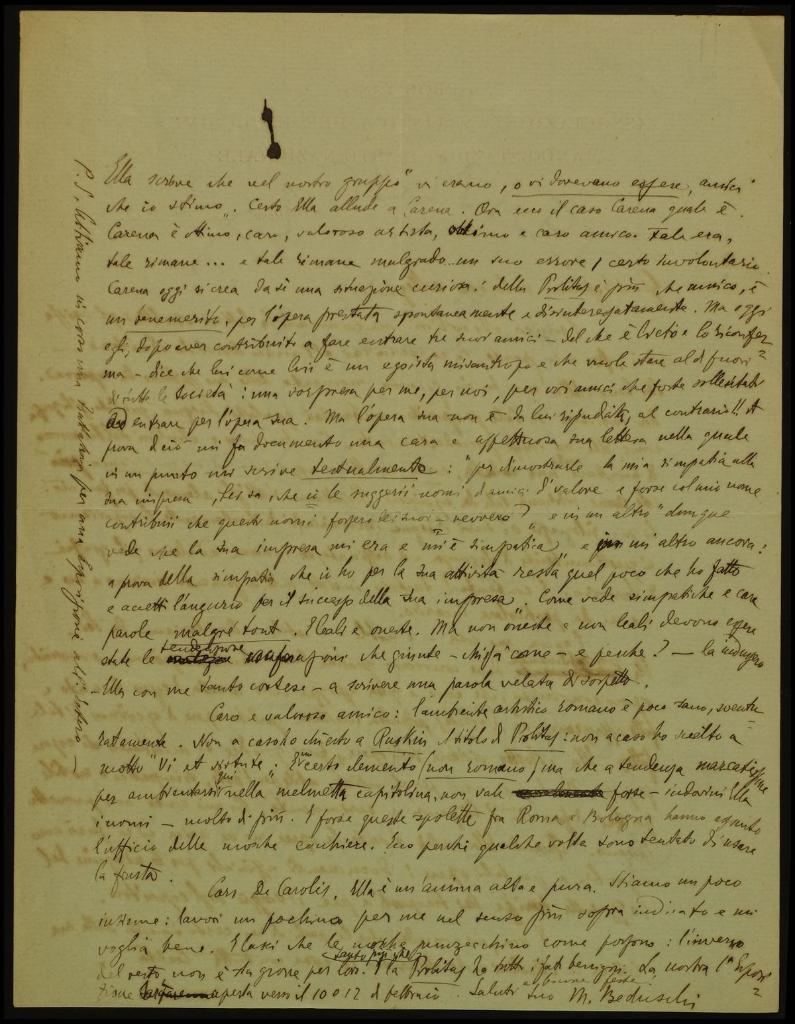 Ella scrive che nel nostro gruppo "vi erano, o vi dovevano essere, amici
che io stimo". Certo Ella allude a Carena. Ora ecco il caso Carena quale è.
Carena è ottimo, caro, valoroso artista, ottimo e caro amico. Tale era,
tale rimane... e tale rimane malgrado un suo errore, certo involontario.
Carena oggi si crea da sè una situazione curiosa: della Probitas è più che amico, è
un benemerito, per l'opera prestata spontaneamente e disinteressatamente. Ma oggi
egli, dopo aver contribuito a fare entrare tre suoi amici - del che è lieto e lo riconfer
ma - dice che lui come lui è un egoista misantropo e che vuole stare al di fuori
di tutte le società: una sorpresa per me, per noi, per voi amici che foste sollecitati
ad entrare per l'opera sua. Ma l'opera sua non è da lui ripudiata, al contrario!! A
prova di ciò mi fa documento una cara e affettuosa sua lettera nella quale
in un punto mi scrive testualmente: "per dimostrarle la mia simpatia alla
sua impresa, Lei sa, che io le suggerii nomi d'amici di valore e forse col mio nome
contribuii che questi nomi fossero dei suoi - nevvero?" e in un altro "dunque
vede che la sua impresa mi era e mi è simpatica", e in un altro ancora:
a prova della simpatia che io ho per la sua attività resta quel poco che ho fatto
e accetti l'augurio per il successo della sua impresa". Come vede simpatiche e care
parole malgré tout. E leali e oneste. Ma non oneste e non leali devono essere
state le tendenziose informazioni che giunte - chissà come - e perchè? - la indussero
- Ella con me tanto cortese - a scrivere una parola velata di sospetto.
Caro e valoroso amico: l'ambiente artistico romano è poco sano, sventu
ratamente. Non a caso ho chiesto a Ruskin il titolo di Probitas: non a caso ho scelto a
motto "Vi et virtute". E un certo elemento (non romano) ma che a tendenza marcatissima
per ambientarsi qui nella melmetta capitolina, non vale forse - indovini Ella
i nomi - molto di più. E forse queste spolette fra Roma e Bologna hanno assunto
l'ufficio delle mosche cocchiere. Ecco perchè qualche volta sono tentato di usare
la frusta.
Caro De Carolis, Ella è un'anima alta e pura. Stiamo un poco
insieme: lavori un pochino per me nel senso più sopra indicato e mi
voglia bene. E lasci che le mosche punzecchino come possono: l'inverno
del resto non è stagione per loro. E la Probitas ha tutti i fati benigni. La nostra 1ª Esposi
zione aperta verso il 10 o 12 di febbraio. Saluti ... suo M. Beduschi
P. S. Abbiamo in corso una trattativa per una Esposizione all'Estero -